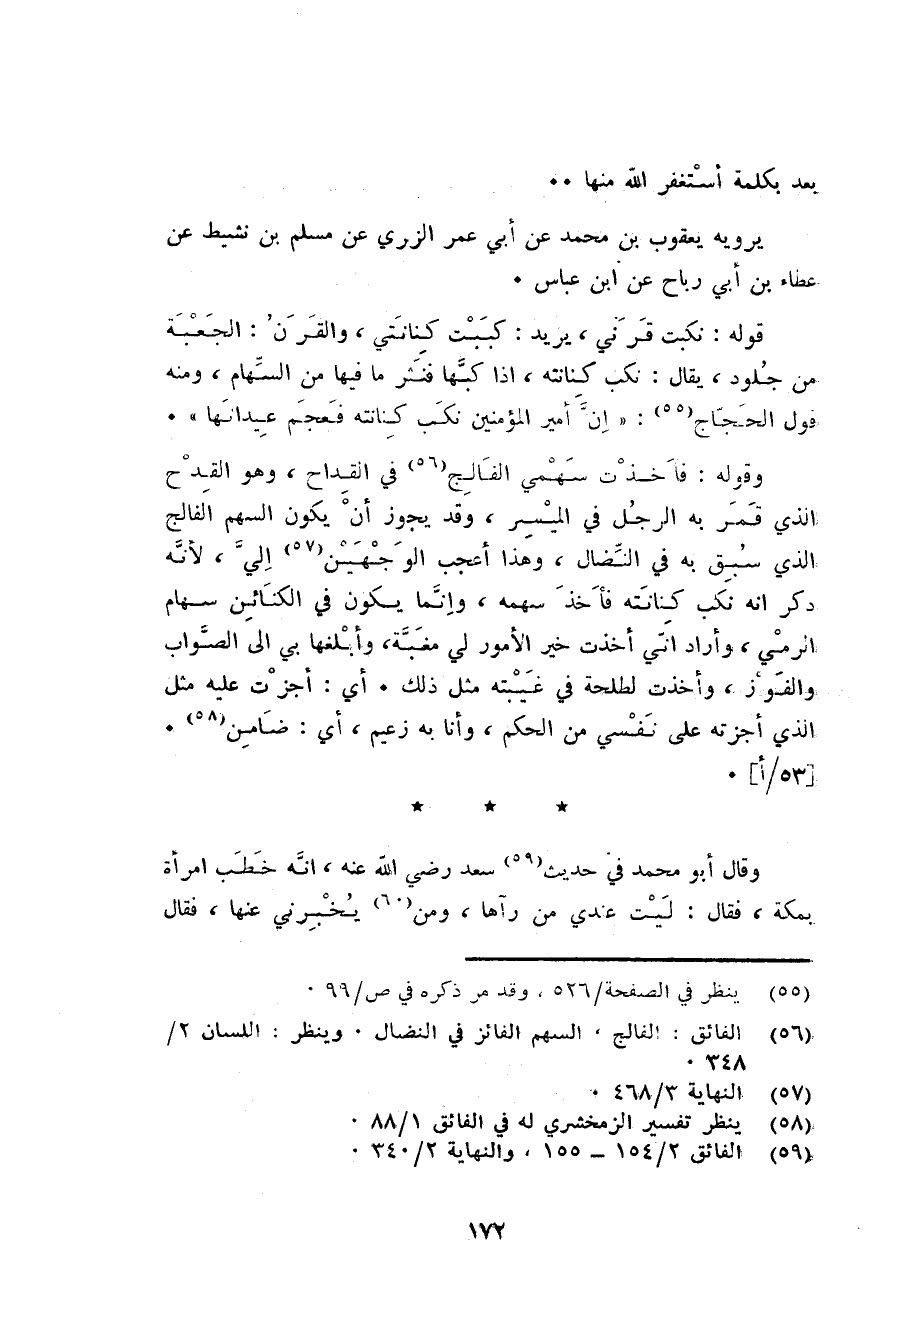 بعد بكلمة أستْغفر الله منها ٠٠
يرويه يعقوب بن محمد عن أبي عمر الزري عن مسلم بن نشيط عن
عطاء بن أبي رباح عن ابن عباس ٠
قوله : نكبت قَرَني ، يريد : كَبَبْت كِنانَتي ، والقَرَنُ : الجَعْبَة
من جُلود ، يقال : نكب كنانته ، اذا كبَّها فنَثر ما فيها من السِّهام ، ومنه
قول الحَجّاج(٥٥) : « إنَّ أمير المؤمنين نكَب كنانته فعَجَم عِيدانَها » ٠
وقوله : فأَخذْت سَهْمي الفَالِج(٥٦) في القِداح ، وهو القِدْح
الذي قَمَر به الرجُل في الميْسِر ، وقد يجوز أنْ يكون السهم الفالج
الذي سُبِق به في النِّضال ، وهذا أعجب الوَجْهَيْن(٥٧) إليَّ ، لأنَّه
ذكر انه نكَب كِنانَته فأَخذَ سهمه ، وإنَّما يكون في الكنَائِن سهام
الرمْي ، وأراد انّي أخذت خير الأمور لي مغَبَّة، وأبْلغها بي الى الصَّواب
والفَوْز ، وأخذت لطلحة في غَيْبته مثل ذلك ٠ أي : أجزْت عليه مثل
الذي أجزته على نَفْسي من الحكم ، وأنا به زعيم ، أي : ضَامِن(٥٨) ٠
[٥٣/أ] ٠
★ ★ ★
وقال أبو محمد في حديث(٥٩) سعد رضي الله عنه ، انَّه خَطَب امرأة
بمكة ، فقال : لَيْت عندي من رآها ، ومن(٦٠) يُخْبِرني عنها ، فقال
(٥٥) ينظر في الصفحة/٥٢٦ ، وقد مر ذكره في ص/٩٩ ٠
(٥٦) الفائق : الفالج ، السهم الفائز في النضال ٠ وينظر : اللسان ٢/
٣٤٨ ٠
(٥٧) النهاية ٤٦٨/٣ ٠
(٥٨) ينظر تفسير الزمخشري له في الفائق ٨٨/١ ٠
(٥٩) الفائق ١٥٤/٢ ــ ١٥٥ ، والنهاية ٣٤٠/٢ ٠
١٧٢